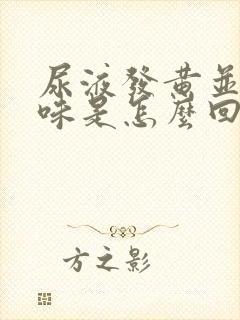 尿液發黃並
味是怎麼回
方之影